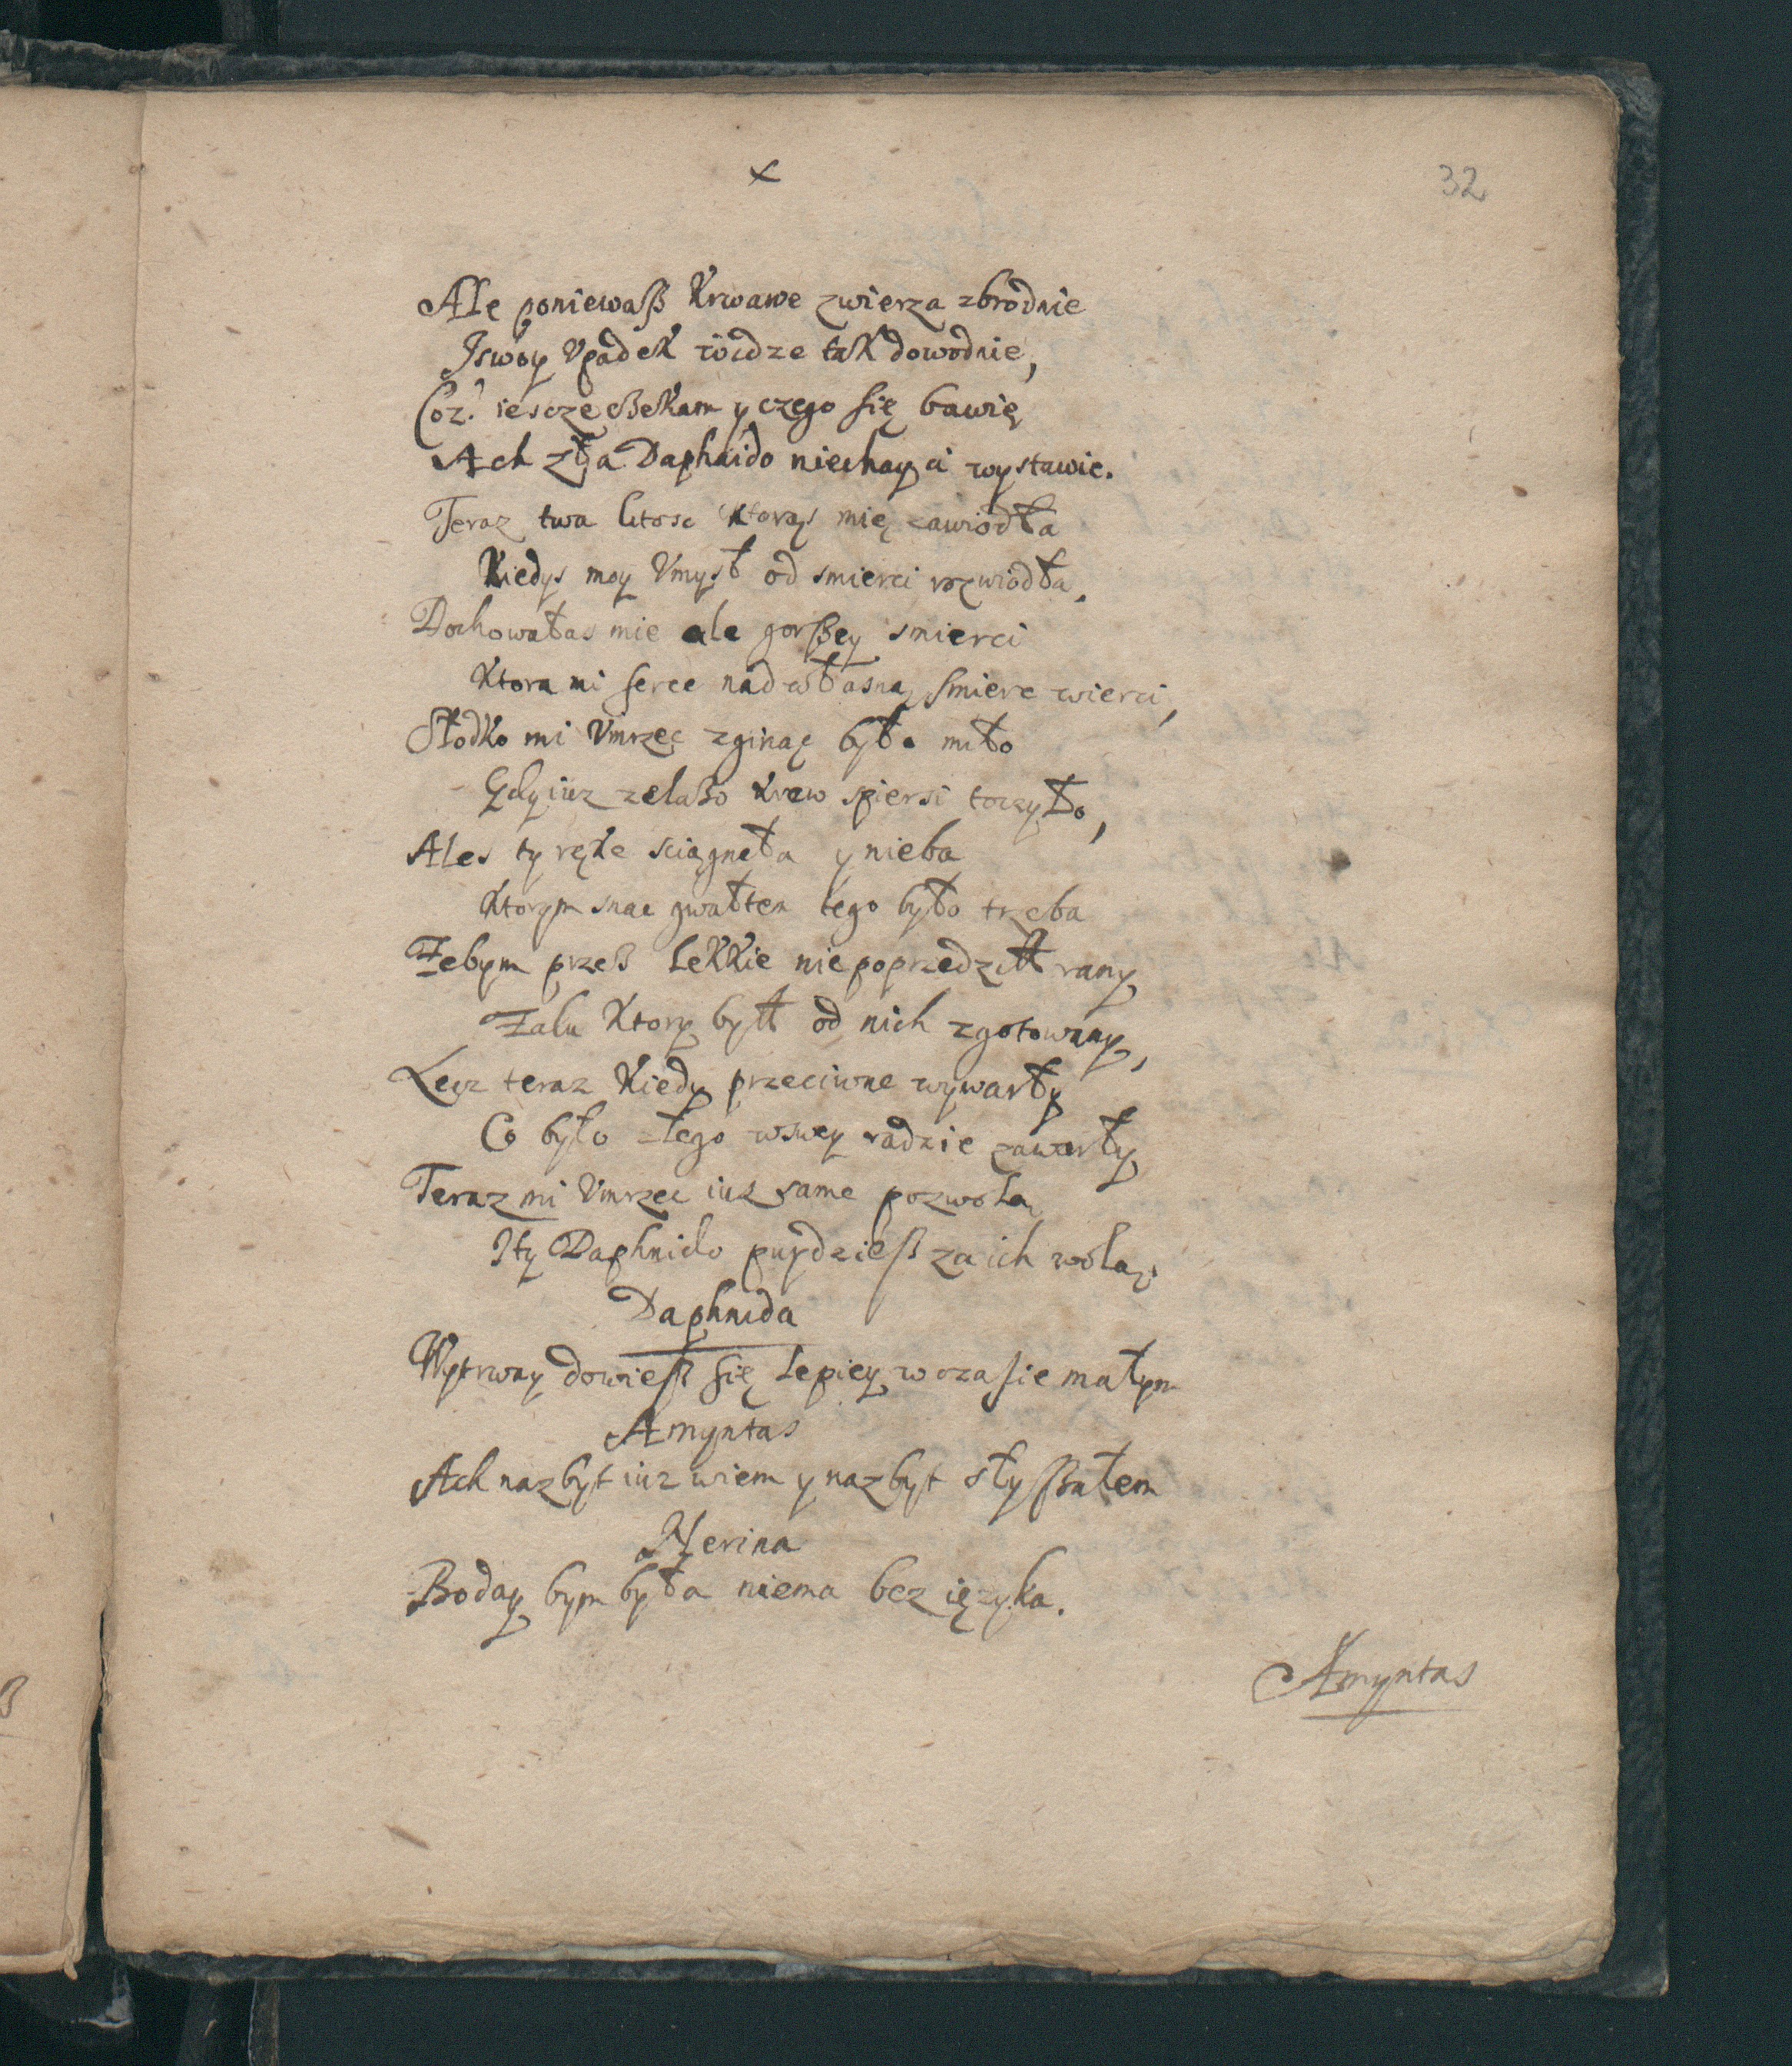 x
32
Ale poniewaß krwawe zwierza zbrodnie
I swoy Vpadek widze tak dowodnie,
Coz? iescze czekam y czego się bawię
Ach zła Daphnido niechay ci wystawie.
Teraz twa litosc ktorąs mię zawiodła
Kiedys moy Vmysł od smierci rozwiodła,
Dochowałas mie ale gorßey smierci
Ktora mi serce nad własną smierc wierci,
Słodko mi Vmrzec zginąc było miło
Gdy iuz zelaßo krew spiersi toczyło,
Ales ty ręke sciągneła y nieba
Ktorym snac gwałtem tego było trzeba
Żebym przeß lekkie nie poprzedził rany
Żalu ktory był od nich zgotowany,
Lecz teraz kiedy przeciwne wywarły
Co było złego wswey radzie zawarły
Teraz mi Vmrzec iuz same pozwolą
I ty Daphnido puydzieß za ich wolą.
Daphnida
Wytrway dowieß się lepiey w czasie małym
Amyntas
Ach nazbyt iuz wiem y nazbyt słyßałem
Nerina
Boday bym była niema bez ięzyka.
Amyntas